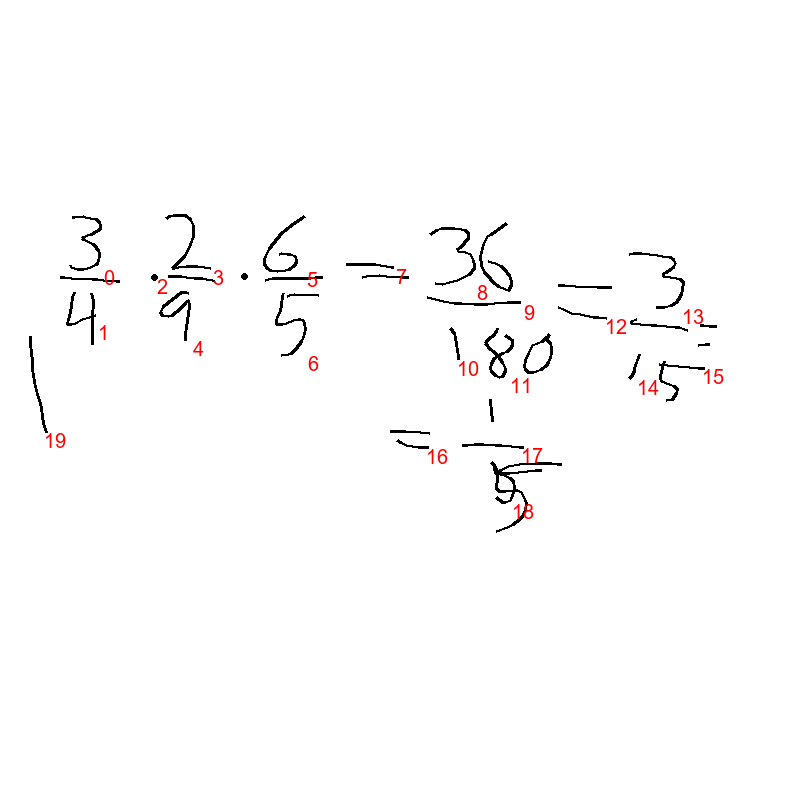 3/4 · 2/9 · 6/5 = 36/180 = 3/15 =
= 1/5
0 1 2 3 4 5 6 7 8 9 10 11 12 13 14 15 16 17 18 19